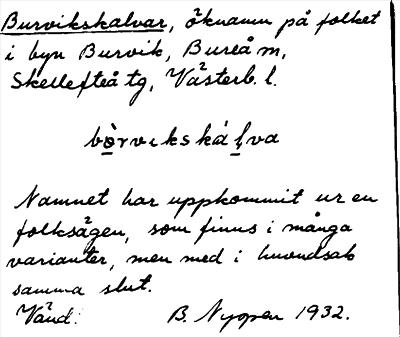 Burvikskalvar, öknamn på folket
i byn Burvik, Bureå m,
Skellefteå tg, Västerb. l.
bòrvikskálva
Namnet har uppkommit ur en
folksägen, som finns i många
varianter, men med i huvudsak
samma slut.
Vänd. B. Nygren 1932.